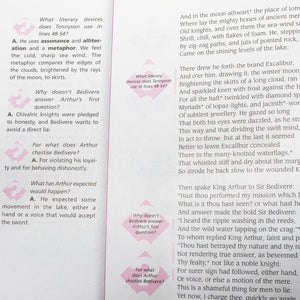 What literary devices
does Tennyson use
in lines 48-54?
A. He uses assonance and alliter-
ation and a metaphor. We feel
the cold, sharp sea wind. The
metaphor compares the edges of
the clouds, brightened by the rays
of the moon, to skirts.
Why doesn't Bedivere
answer Arthur's first
question?
A. Chivalric knights were pledged
to honesty, and Bedivere wants to
avoid a direct lie.
For what does Arthur
chastise Bedivere?
A. For violating his loyal-
ty and for behaving dishonestly.
What has Arthur expected
would happen?
A. He expected some
movement in the lake, either a
hand or a voice that would accept
the sword.
What literary
devices does
Tennyson use
in lines 48-54?
Why doesn't
Bedivere answer
Arthur's first
question?
For what
does Arthur
chastise Bedivere?
And in the moon athwart* the place of tomb
Where lay the mighty bones of ancient men
Old knights, and over them the sea-wind s
Shrill, chill, with flakes of foam. He, steppi
By zig-zag paths, and juts of pointed rock,
Came on the shining levels of the lake.
There drew he forth the brand Excalibur,
And o'er him, drawing it, the winter moon
Brightening the skirts of a long cloud, ran
And sparkled keen with frost against the hi
For all the haft* twinkled with diamond sp
Myriads* of topaz-lights, and jacinth*-wor
Of subtlest jewellery. He gazed so long
That both his eyes were dazzled, as he stoo
This way and that dividing the swift mind
In act to throw: but at the last it seemed
Better to leave Excalibur concealed
There in the many-knotted waterflags,*
That whistled stiff and dry about the marg
So strode he back slow to the wounded K
Then spake King Arthur to Sir Bedivere:
"Hast thou performed my mission which I
What is it thou hast seen? or what hast he
And answer made the bold Sir Bedivere:
"I heard the ripple washing in the reeds,
And the wild water lapping on the crag."
To whom replied King Arthur, faint and p
"Thou hast betrayed thy nature and thy na
Not rendering true answer, as beseemed
Thy fealty,* nor like a noble knight:
For surer sign had followed, either hand,
Or voice, or else a motion of the mere.
This is a shameful thing for men to lie.
Yet now, I charge thee, quickly go again,